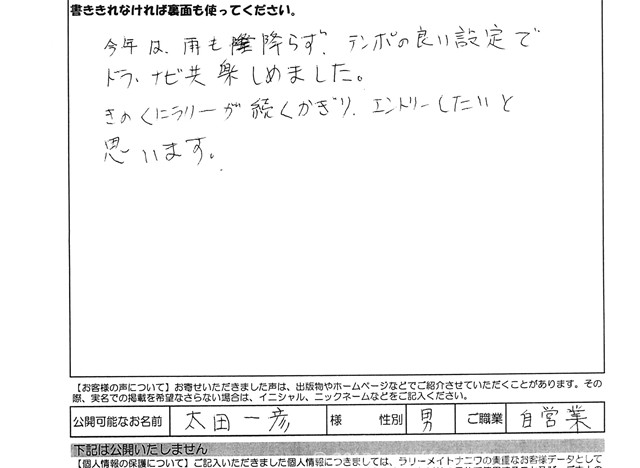 書ききれなければ裏面も使ってください。
今年は、雨も降らず、テンポの良い設定で
ドラ、ナビ共楽しめました。
きのくにラリーが続くかぎり、エントリーしたいと
思います。
【お客様の声について】お寄せいただきました声は、出版物やホームページなどでご紹介させていただくことがあります。その
際、実名での掲載を希望なさらない場合は、イニシャル、ニックネームなどをご記入ください。
公開可能なお名前 太田一彦 様 性別 男 ご職業 自営業
下記は公開いたしません
【個人情報の保護について】ご記入いただきました個人情報につきましては、ラリーメイトナニワの重要なお客様データとして